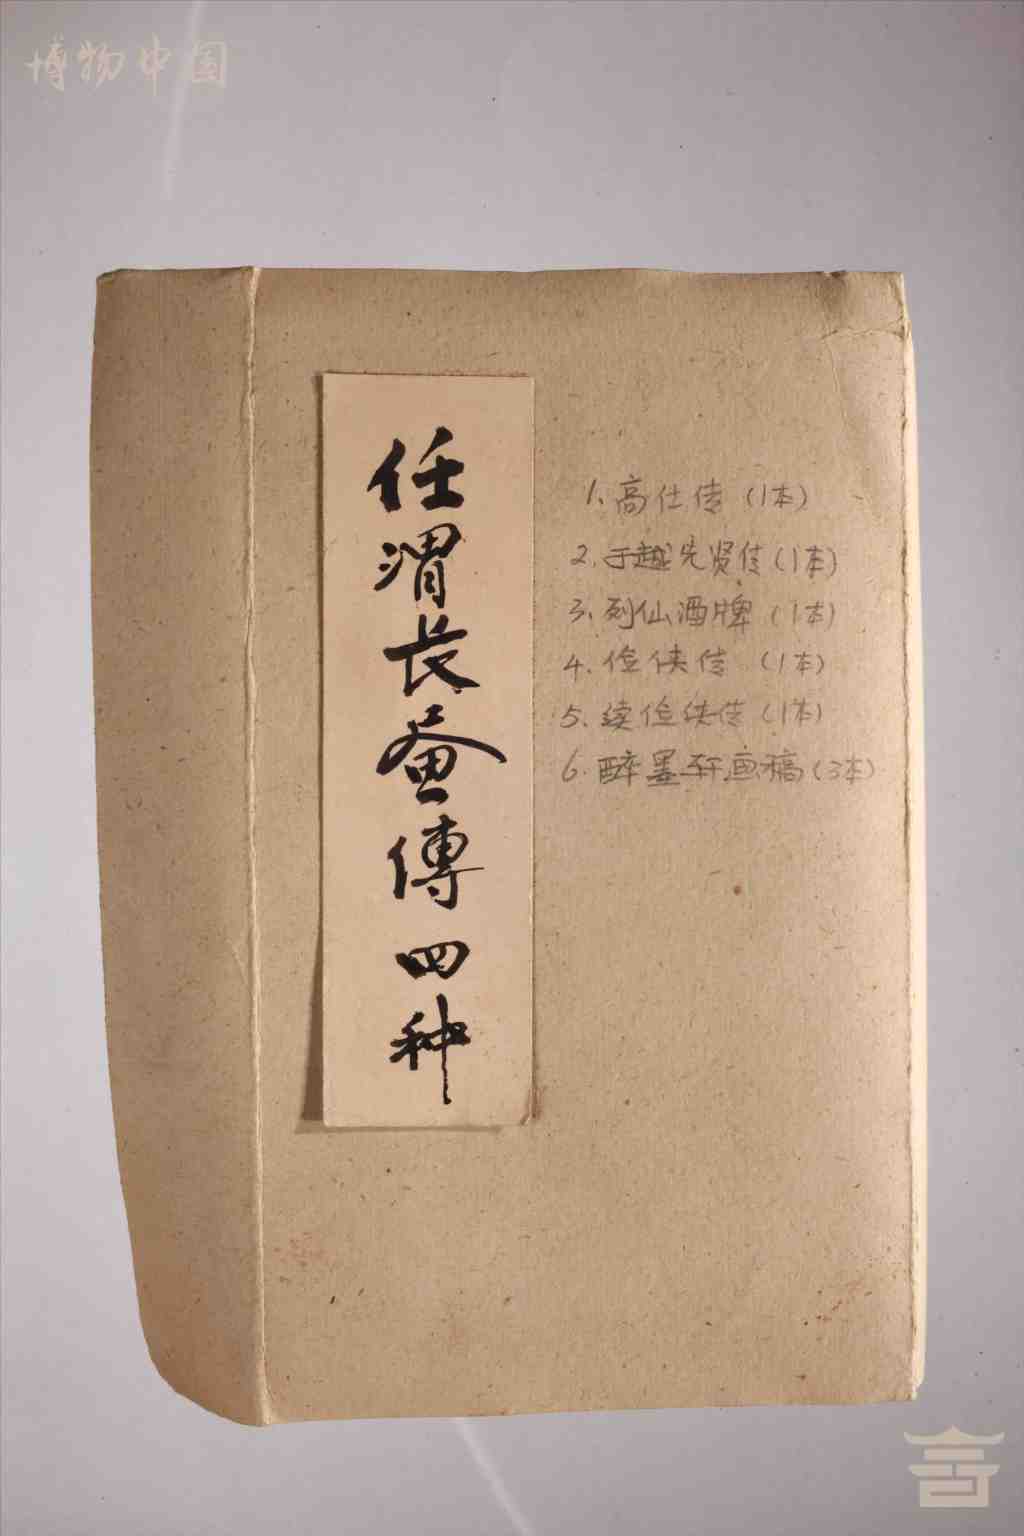 博物中国
任渭长畫傳四种
1、高仕传(1本)
2.于越先贤传(1本)
3、列仙酒牌(1本)
4、俭侠传(1本)
5、续俭侠传(1本)
6.醉墨轩画稿(3本)